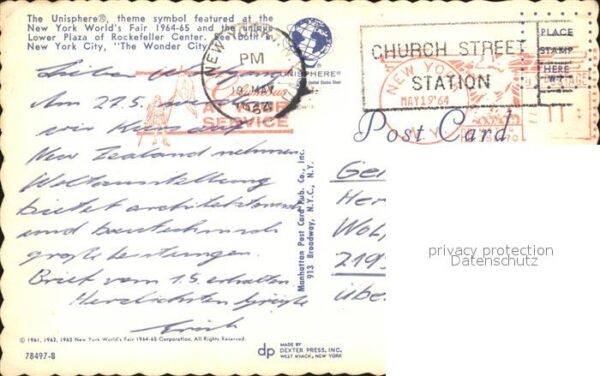 The Unisphere®, theme symbol featured at the
New York World's Fair 1964-65 and the unique
Lower Plaza of Rockefeller Center. See both in
New York City, "The Wonder City."
UNISPHERE®
NEW YORK
PM
19 MAY
1964
CHURCH STREET
STATION
NEW YORK
MAY 19 '64
N.Y.
PLACE
STAMP
HERE
SERVICE
Post Card
Lieber Wolfgang
Am 27.5. werden
wir Kurs auf
New Zealand nehmen
Weltausstellung
bietet architektonisch
und bautechnisch
große Leistungen.
Brief vom 1.5. erhalten
Herzlichsten Grüße
Erich
Manhattan Post Card Pub. Co., Inc.
913 Broadway, N.Y.C., N.Y.
Ger
Her
Wol
219
übe
privacy protection
Datenschutz
© 1961, 1962, 1963 New York World's Fair 1964-65 Corporation. All Rights Reserved.
78497-B
dp
MADE BY
DEXTER PRESS, INC.
WEST NYACK, NEW YORK